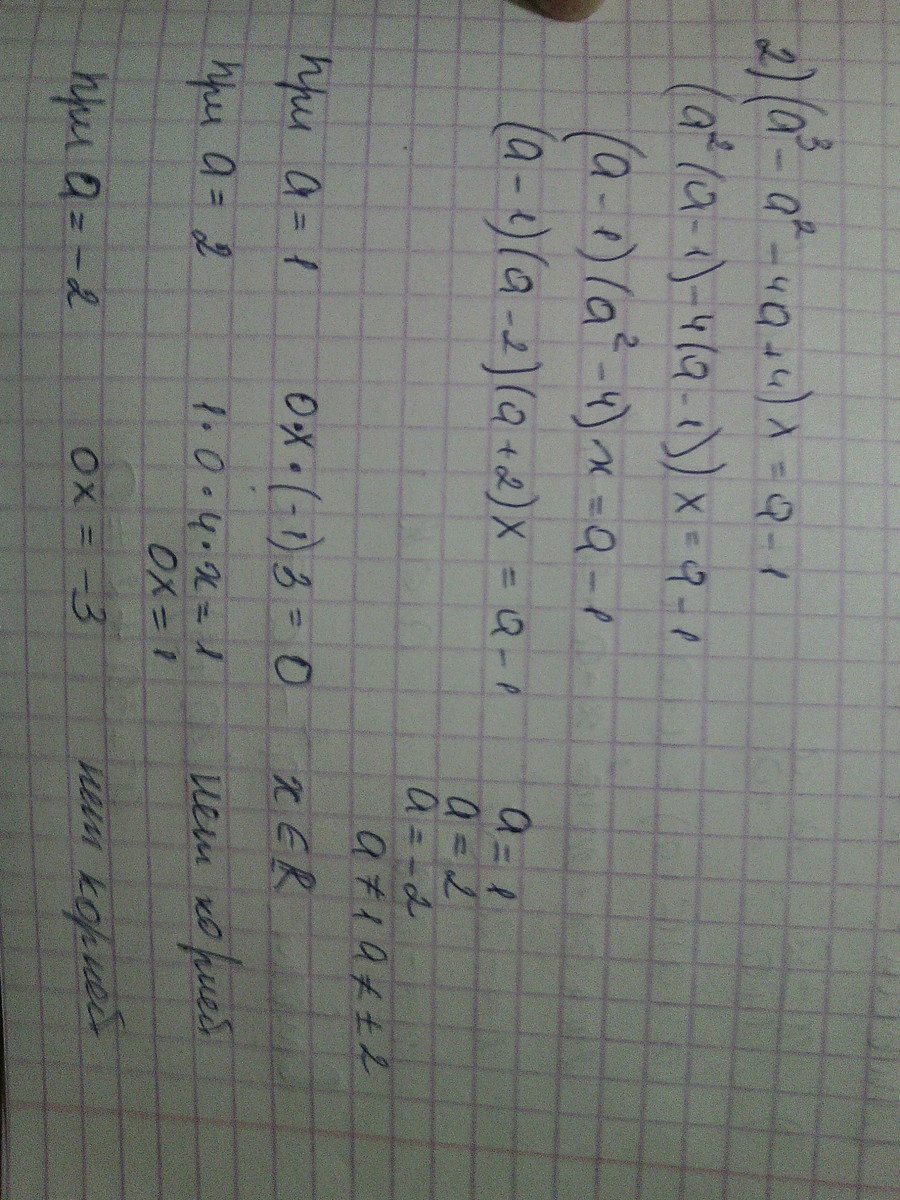 2) (a³ - a² - 4a + 4) x = a - 1
(a² (a - 1) - 4 (a - 1)) x = a - 1
(a - 1) (a² - 4) x = a - 1
(a - 1) (a - 2) (a + 2) x = a - 1
a = 1
a = 2
a = -2
a ≠ 1 a ≠ ± 2
при a = 1 0·x·(-1)3 = 0 x ∈ R
при a = 2 1·0·4·x = 1 нет корней
0x = 1
при a = -2 0x = -3 нет корней